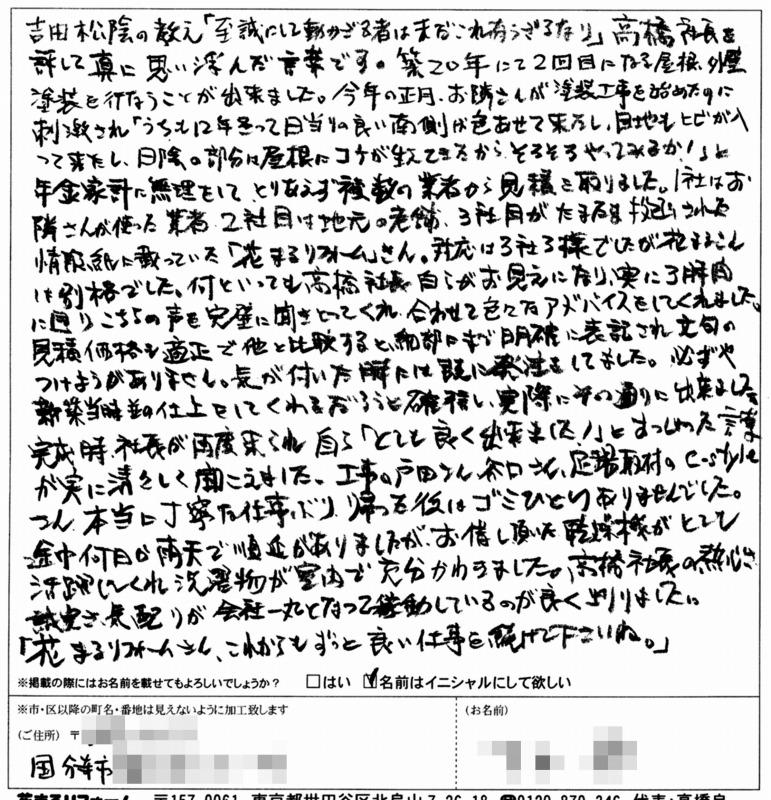 吉田松陰の教え「至誠にして動かざる者はまだこれ有らざるなり」高橋社長を
評して真に思い浮んだ言葉です。築20年にて2回目になる屋根、外壁
塗装を行なうことが出来ました。今年の正月、お隣さんが塗装工事を始めたのに
刺激され「うちも12年経って日当りの良い南側が色あせて来たし、目地もヒビが入
って来たし、日陰の部分は屋根にコケが生えてきたからそろそろやってみるか！」と
年金家計に無理をして、とりあえず複数の業者から見積を取りました。1社はお
隣さんが使った業者、2社目は地元の老舗、3社目がたまたま投函された
情報紙に載っていた「花まるリフォーム」さん。対応は3社3様でしたが花まるさん
は別格でした。何といっても高橋社長自らがお見えになり、実に3時間
に亘りこちらの声を完璧に聞きとってくれ、合わせて色々なアドバイスをしてくれました。
見積価格も適正で他と比較すると細部にまで明確に表記され文句の
つけようがありません。気が付いた時には既に発注をしてました。必ずや
新築当時並の仕上をしてくれるだろうと確信し、実際にその通りに出来ました。
完成時、社長が再度来られ自ら「とても良く出来ました！」とおっしゃった言葉
が実に清々しく聞こえました。工事の戸田さん、谷口さん、足場取材のC-style
さん、本当に丁寧な仕事ぶり、帰った後はゴミひとつありませんでした。
途中何日か雨天で順延がありましたが、お借し頂いた乾燥機がとても
活躍してくれ洗濯物が室内で充分かわきました。高橋社長の熱心さ
誠実さ、気配りが会社一丸となって稼動しているのが良く判りました。
「花まるリフォームさん、これからもずっと良い仕事を続けて下さいね。」
※掲載の際にはお名前を載せてもよろしいでしょうか？ □はい ☑名前はイニシャルにして欲しい
※市・区以降の町名・番地は見えないように加工致します
(お名前)
(ご住所) 〒
国分寺市
花まるリフォーム 〒157-0061 東京都世田谷区北烏山7-26-18 ☎0120-870-246 代表：高橋良